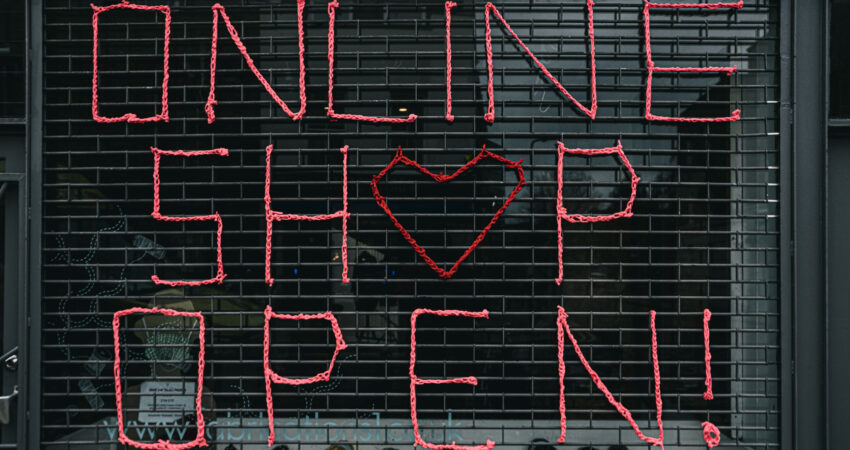 ONLINE
SH♥P
OPEN!
www.fabrications1.co.uk